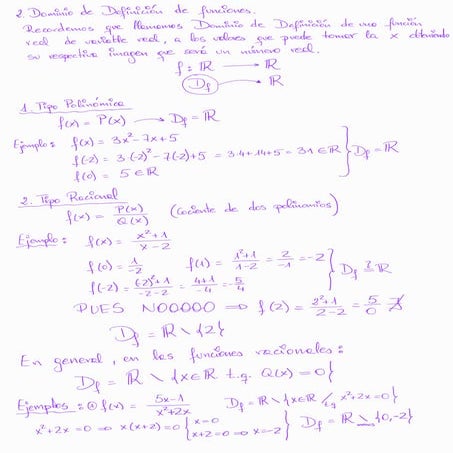 2. Dominio de Definición de funciones.
Recordemos que llamamos Dominio de Definición de una función
real de variable real, a los valores que puede tomar la x obteniendo
su respectiva imagen que será un número real.
f: ℝ → ℝ
D_f → ℝ
1. Tipo Polinómica
f(x) = P(x) → D_f = ℝ
Ejemplo: f(x) = 3x² - 7x + 5
f(-2) = 3·(-2)² - 7(-2) + 5 = 3·4 + 14 + 5 = 31 ∈ ℝ } D_f = ℝ
f(0) = 5 ∈ ℝ
2. Tipo Racional
f(x) = P(x)/Q(x) (cociente de dos polinomios)
Ejemplo: f(x) = x²+1/x-2
f(0) = 1/-2 f(1) = 1²+1/1-2 = 2/-1 = -2
f(-2) = (-2)²+1/-2-2 = 4+1/-4 = -5/4 } D_f ?= ℝ
PUES NOOOOO ⇒ f(2) = 2²+1/2-2 = 5/0 ∄
D_f = ℝ \ {2}
En general, en las funciones racionales:
D_f = ℝ \ {x∈ℝ t.q. Q(x) = 0}
Ejemplos: ⓐ f(x) = 5x-1/x²+2x D_f = ℝ \ {x∈ℝ / t.q. x²+2x=0}
x²+2x=0 ⇒ x(x+2)=0 { x=0 x+2=0 ⇒ x=-2 } D_f = ℝ \ {0,-2}